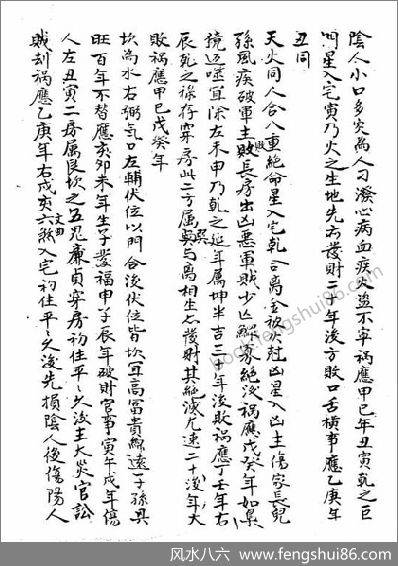 陰人小口多災萬人刁潑心病血疾災盜不寧禍應甲巳年丑寅乾之巨
門星入宅寅乃火之生地先有發財二十年後方敗口舌橫事應乙庚年
丑同
天火同人合八重絕命星入宅乾合離金被火尅凶星入凶主傷家長兒
孫風疾破軍主敗長房出凶惡軍賊少亡 家絕後禍應戊癸年如臭
境迈 宜除左未申乃乾之延年属坤半吉三年後敗禍應丁壬年右
辰乾之祿存穿房此二方属巽與离相生亦發財其絕滅尤速二十後年大
敗禍應甲巳戊癸年
坎為水右弼氣口左輔伏位以門合後伏位皆坎宜高冨貴綿遠子孫興
旺百年不替應亥卯未年生子發福申子辰年破財官事寅午戌年傷
人左丑寅二房属艮坎之五鬼廉貞穿房初住平平久後主火災官訟
賊刦禍應乙庚年右戌亥六煞文曲入宅初住平平久後先損陰人後傷陽人
bookfengshui86.com
风水八六 www.fengshui86.com